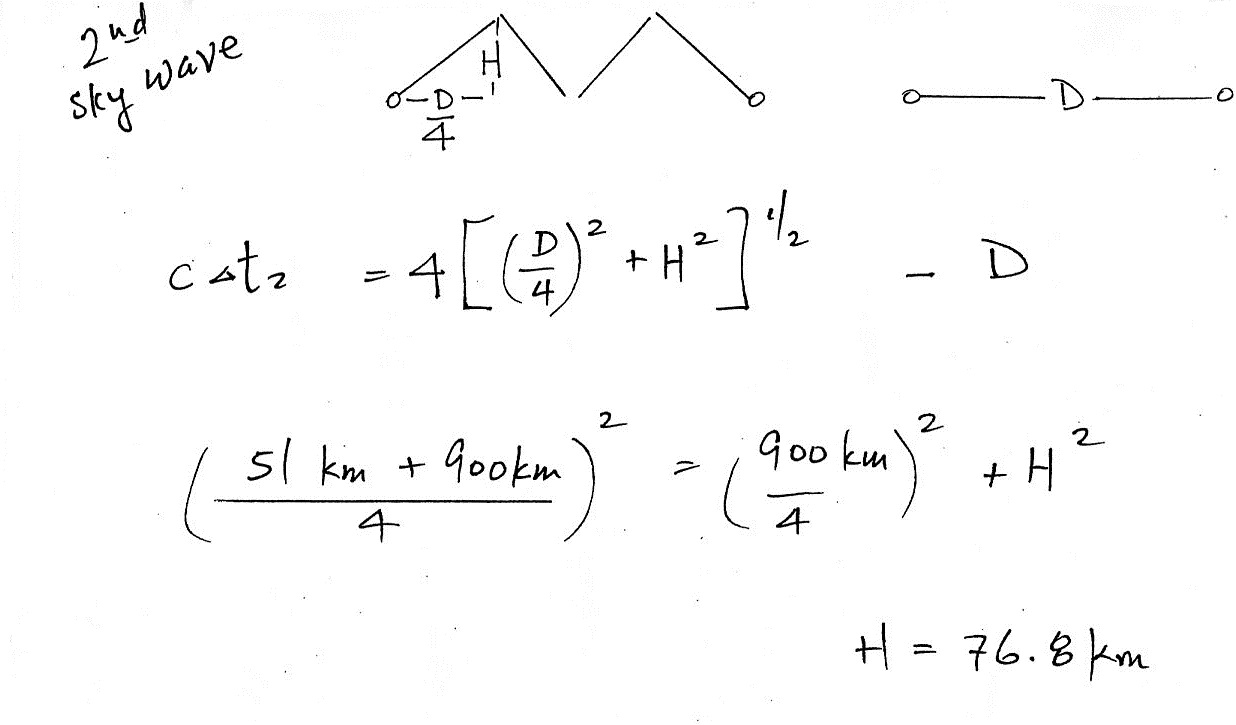 2nd
sky wave
H
D/4
D
c Δt₂ = 4[(D/4)² + H²]^1/2 - D
((51 km + 900km)/4)² = (900 km/4)² + H²
H = 76.8 km